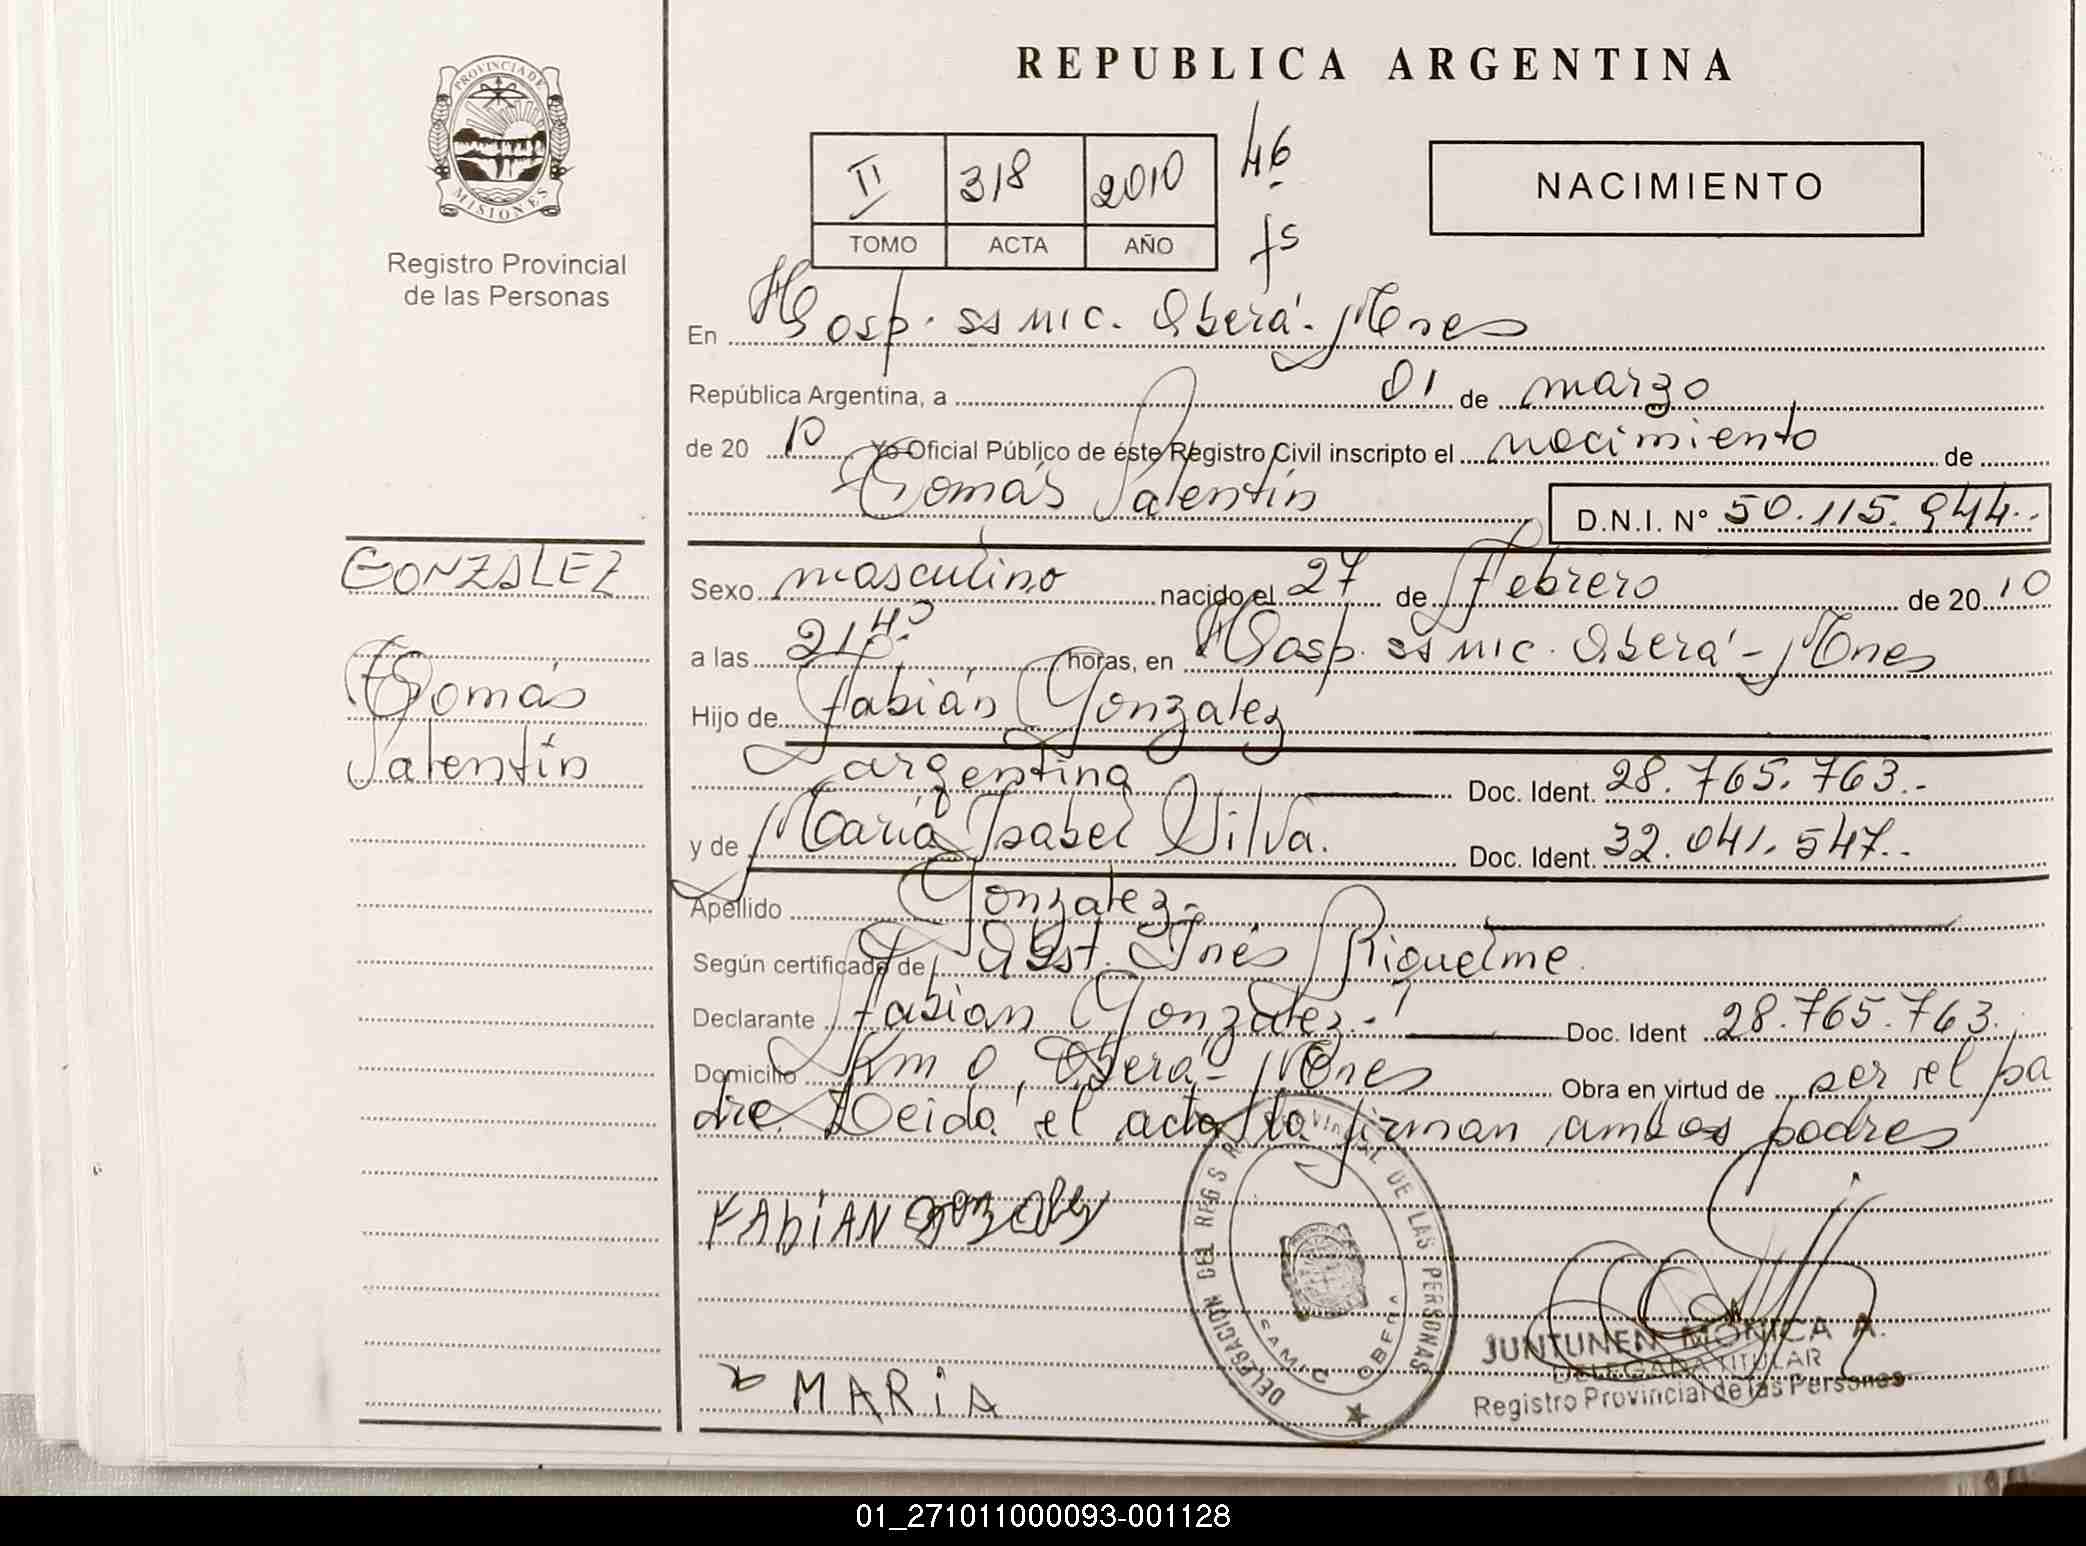 PROVINCIA DE
MISIONES
Registro Provincial
de las Personas
GONZALEZ
Tomás
Valentín
REPUBLICA ARGENTINA
II 318 2010 46
TOMO ACTA AÑO fs
NACIMIENTO
En Hosp. ss mic. Oberá - Mnes
República Argentina, a 01 de marzo
de 20 10 Yo Oficial Público de éste Registro Civil inscripto el nacimiento de
Tomás Valentín D.N.I. N° 50.115.944..
Sexo masculino nacido el 27 de Febrero de 20 10
a las 21 horas, en Hosp. ss mic. Oberá - Mnes
Hijo de Fabián Gonzalez
argentina Doc. Ident. 28.765.763.-
y de María Isabel Silva. Doc. Ident. 32.041.547..
Apellido Gonzalez.-
Según certificado de Obst. Inés Riquelme.
Declarante Fabián Gonzalez.- Doc. Ident 28.765.763.
Domicilio Km 0, Oberá - Mnes Obra en virtud de ser el pa
dre. Leída el acta la firman ambos padres
FAbiAN gonzalez
MARiA
DELEGACION DEL REG PROVINCIAL DE LAS PERSONAS
SAMIC OBERA
JUNTUNEN MONICA A.
DELEGADA TITULAR
Registro Provincial de las Personas
01_271011000093-001128